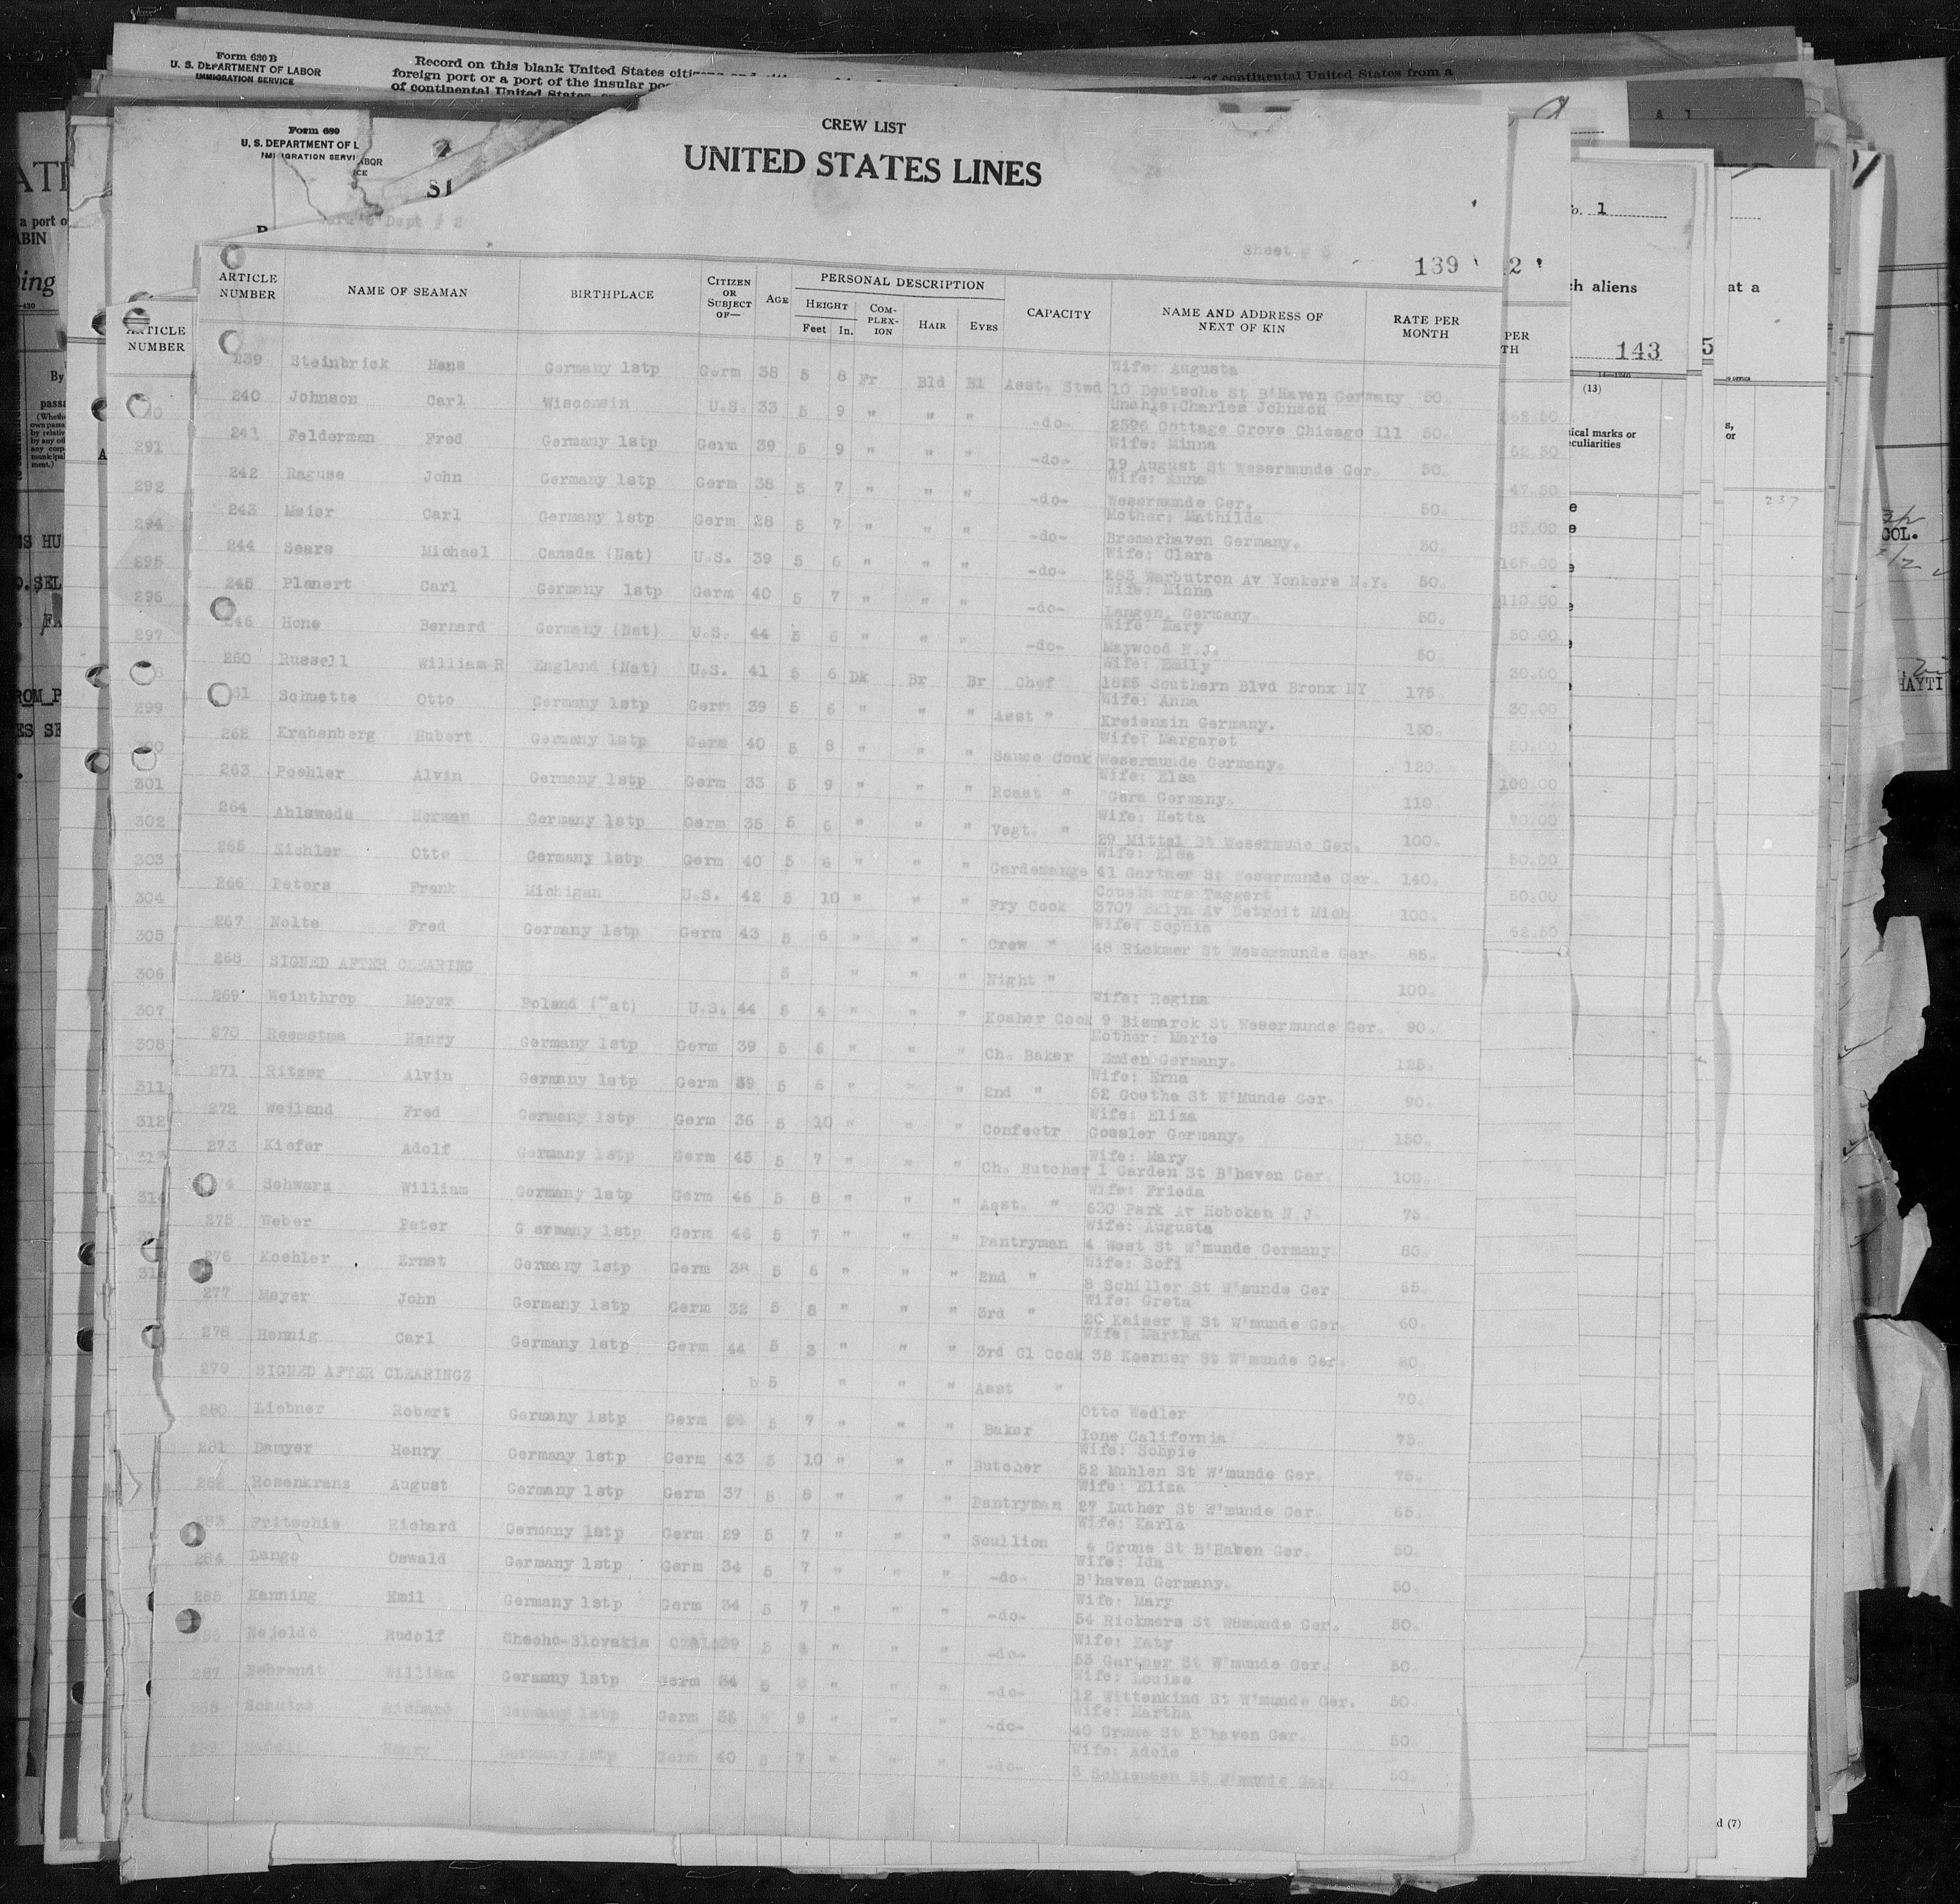 Form 630 B
U. S. DEPARTMENT OF LABOR
IMMIGRATION SERVICE
Record on this blank United States
foreign port or a port of the insular
of continental United States
of continental United States from a
Form 680
U. S. DEPARTMENT OF L
IMMIGRATION SERVI
CREW LIST
UNITED STATES LINES
Dept # 2
Sheet #
139
ARTICLE NUMBER NAME OF SEAMAN BIRTHPLACE CITIZEN OR SUBJECT OF— AGE PERSONAL DESCRIPTION HEIGHT Feet In. COMPLEXION HAIR EYES CAPACITY NAME AND ADDRESS OF NEXT OF KIN RATE PER MONTH
239 Steinbrick Hans Germany 1stp Germ 38 5 8 Fr Bld Bl Asst. Stwd Wife: Augusta
10 Deutsche St B'Haven Germany 50.
240 Johnson Carl Wisconsin U.S. 33 5 9 " " " -do- Unchle:Charles Johnson
2596 Cottage Grove Chicago Ill 50.
241 Felderman Fred Germany 1stp Germ 39 5 9 " " " -do- Wife: Minna
19 August St Wesermunde Ger. 50.
242 Raguse John Germany 1stp Germ 38 5 7 " " " -do- Wife: Anna
Wesermunde Ger. 50.
243 Meier Carl Germany 1stp Germ 28 5 7 " " " -do- Mother: Mathilda
Bremerhaven Germany. 50
244 Sears Michael Canada (Nat) U.S. 39 5 6 " " " -do- Wife: Clara
263 Warbutron Av Yonkers N.Y. 50.
245 Planert Carl Germany 1stp Germ 40 5 7 " " " -do- Wife: Minna
Langen, Germany. 50.
246 Hone Bernard Germany (Nat) U.S. 44 5 6 " " " -do- Wife: Mary
Maywood N.J. 50.
260 Russell William R England (Nat) U.S. 41 5 6 Dk Br Br Chef Wife: Emily
1825 Southern Blvd Bronx NY 175.
261 Schuette Otto Germany 1stp Germ 39 5 6 " " " Asst " Wife: Anna
Kreiensin Germany. 150.
262 Krahenberg Hubert Germany 1stp Germ 40 5 8 " " " Sauce Cook Wife: Margaret
Wesermunde Germany. 120.
263 Poehler Alvin Germany 1stp Germ 33 5 9 " " " Roast " Wife: Elsa
Gera Germany. 110.
264 Ahlswede Herman Germany 1stp Germ 35 5 6 " " " Vegt. " Wife: Hetta
29 Mittel St Wesermunde Ger. 100.
265 Eichler Otto Germany 1stp Germ 40 5 6 " " " Gardemange Wife: Elsa
41 Gartner St Wesermunde Ger. 140.
266 Peters Frank Michigan U.S. 42 5 10 " " " Fry Cook Cousin mrs Taggert
3707 Bklyn Av Detroit Mich 100.
267 Nolte Fred Germany 1stp Germ 43 5 6 " " " Crew " Wife: Sophia
48 Rickmer St Wesermunde Ger. 85.
268 SIGNED AFTER CLEARING 5 " " " Night " 100.
269 Weinthrop Meyer Poland U.S. 44 5 4 " " " Kosher Cook Wife: Regina
9 Bismarck St Wesermunde Ger. 90.
270 Reemstma Henry Germany 1stp Germ 39 5 6 " " " Ch. Baker Mother: Marie
Emden Germany. 125.
271 Ritzer Alvin Germany 1stp Germ 39 5 6 " " " 2nd " Wife: Erna
52 Goethe St W'Munde Ger. 90.
272 Weiland Fred Germany 1stp Germ 36 5 10 " " " Confectr Wife: Eliza
Gossler Germany. 150.
273 Kiefer Adolf Germany 1stp Germ 45 5 7 " " " Ch. Butcher Wife: Mary
1 Garden St B'haven Ger. 100.
274 Schwarz William Germany 1stp Germ 46 5 8 " " " Asst. " Wife: Frieda
630 Park Av Hoboken N.J. 75.
275 Weber Peter G ermany 1stp Germ 46 5 7 " " " Pantryman Wife: Augusta
4 West St W'munde Germany. 80.
276 Koehler Ernst Germany 1stp Germ 38 5 6 " " " 2nd " Wife: Sofi
8 Schiller St W'munde Ger 65.
277 Meyer John Germany 1stp Germ 32 5 8 " " " 3rd " Wife: Greta
20 Kaiser W St W'munde Ger. 60.
278 Hennig Carl Germany 1stp Germ 44 5 3 " " " 3rd Cl Cook Wife: Martha
32 Koerner St W'munde Ger. 80.
279 SIGNED AFTER CLEARINGZ 5 " " " Asst " 70.
280 Liebner Robert Germany 1stp Germ 5 7 " " " Baker Otto Wedler
Ione California 75.
281 Damyer Henry Germany 1stp Germ 43 5 10 " " " Butcher Wife: Sohpie
52 Muhlen St W'munde Ger. 75.
282 Rosenkranz August Germany 1stp Germ 37 5 8 " " " Pantryman Wife: Eliza
27 Luther St W'munde Ger. 65.
283 Fritschie Richard Germany 1stp Germ 29 5 7 " " " Scullion Wife: Karla
4 Grune St B'Haben Ger. 50.
284 Lange Oswald Germany 1stp Germ 34 5 7 " " " -do- Wife: Ida
B'haven Germany. 50.
285 Kanning Emil Germany 1stp Germ 34 5 7 " " " -do- Wife: Mary
54 Rickmers St W'munde Ger. 50.
286 Rudolf 39 5 " " " -do- Wife: Katy
53 Gartner St W'munde Ger. 50.
287 Behrendt William Germany 1stp Germ 34 5 8 " " " -do- Wife: Louise
12 Wittenkind St W'munde Ger. 50.
288 Schulze Richard Germany 1stp Germ 9 " " " -do- Wife: Martha
40 Grune St B'haven Ger. 50.
289 Henry Germany 1stp Germ 40 7 " " " -do- Wife: Adele
3 St W'munde Ger. 50.
ARTICLE NUMBER
291
292
294
295
296
297
299
301
302
303
304
305
306
307
308
311
312
313
314
2
PER
TH
62.50
62.50
47.50
85.00
165.00
110.00
50.00
30.00
30.00
50.00
100.00
70.00
50.00
50.00
62.50
o. 1
ch aliens
143
(13)
ical marks or
culiarities
at a
5
237
COL.
HAYTI
d (7)